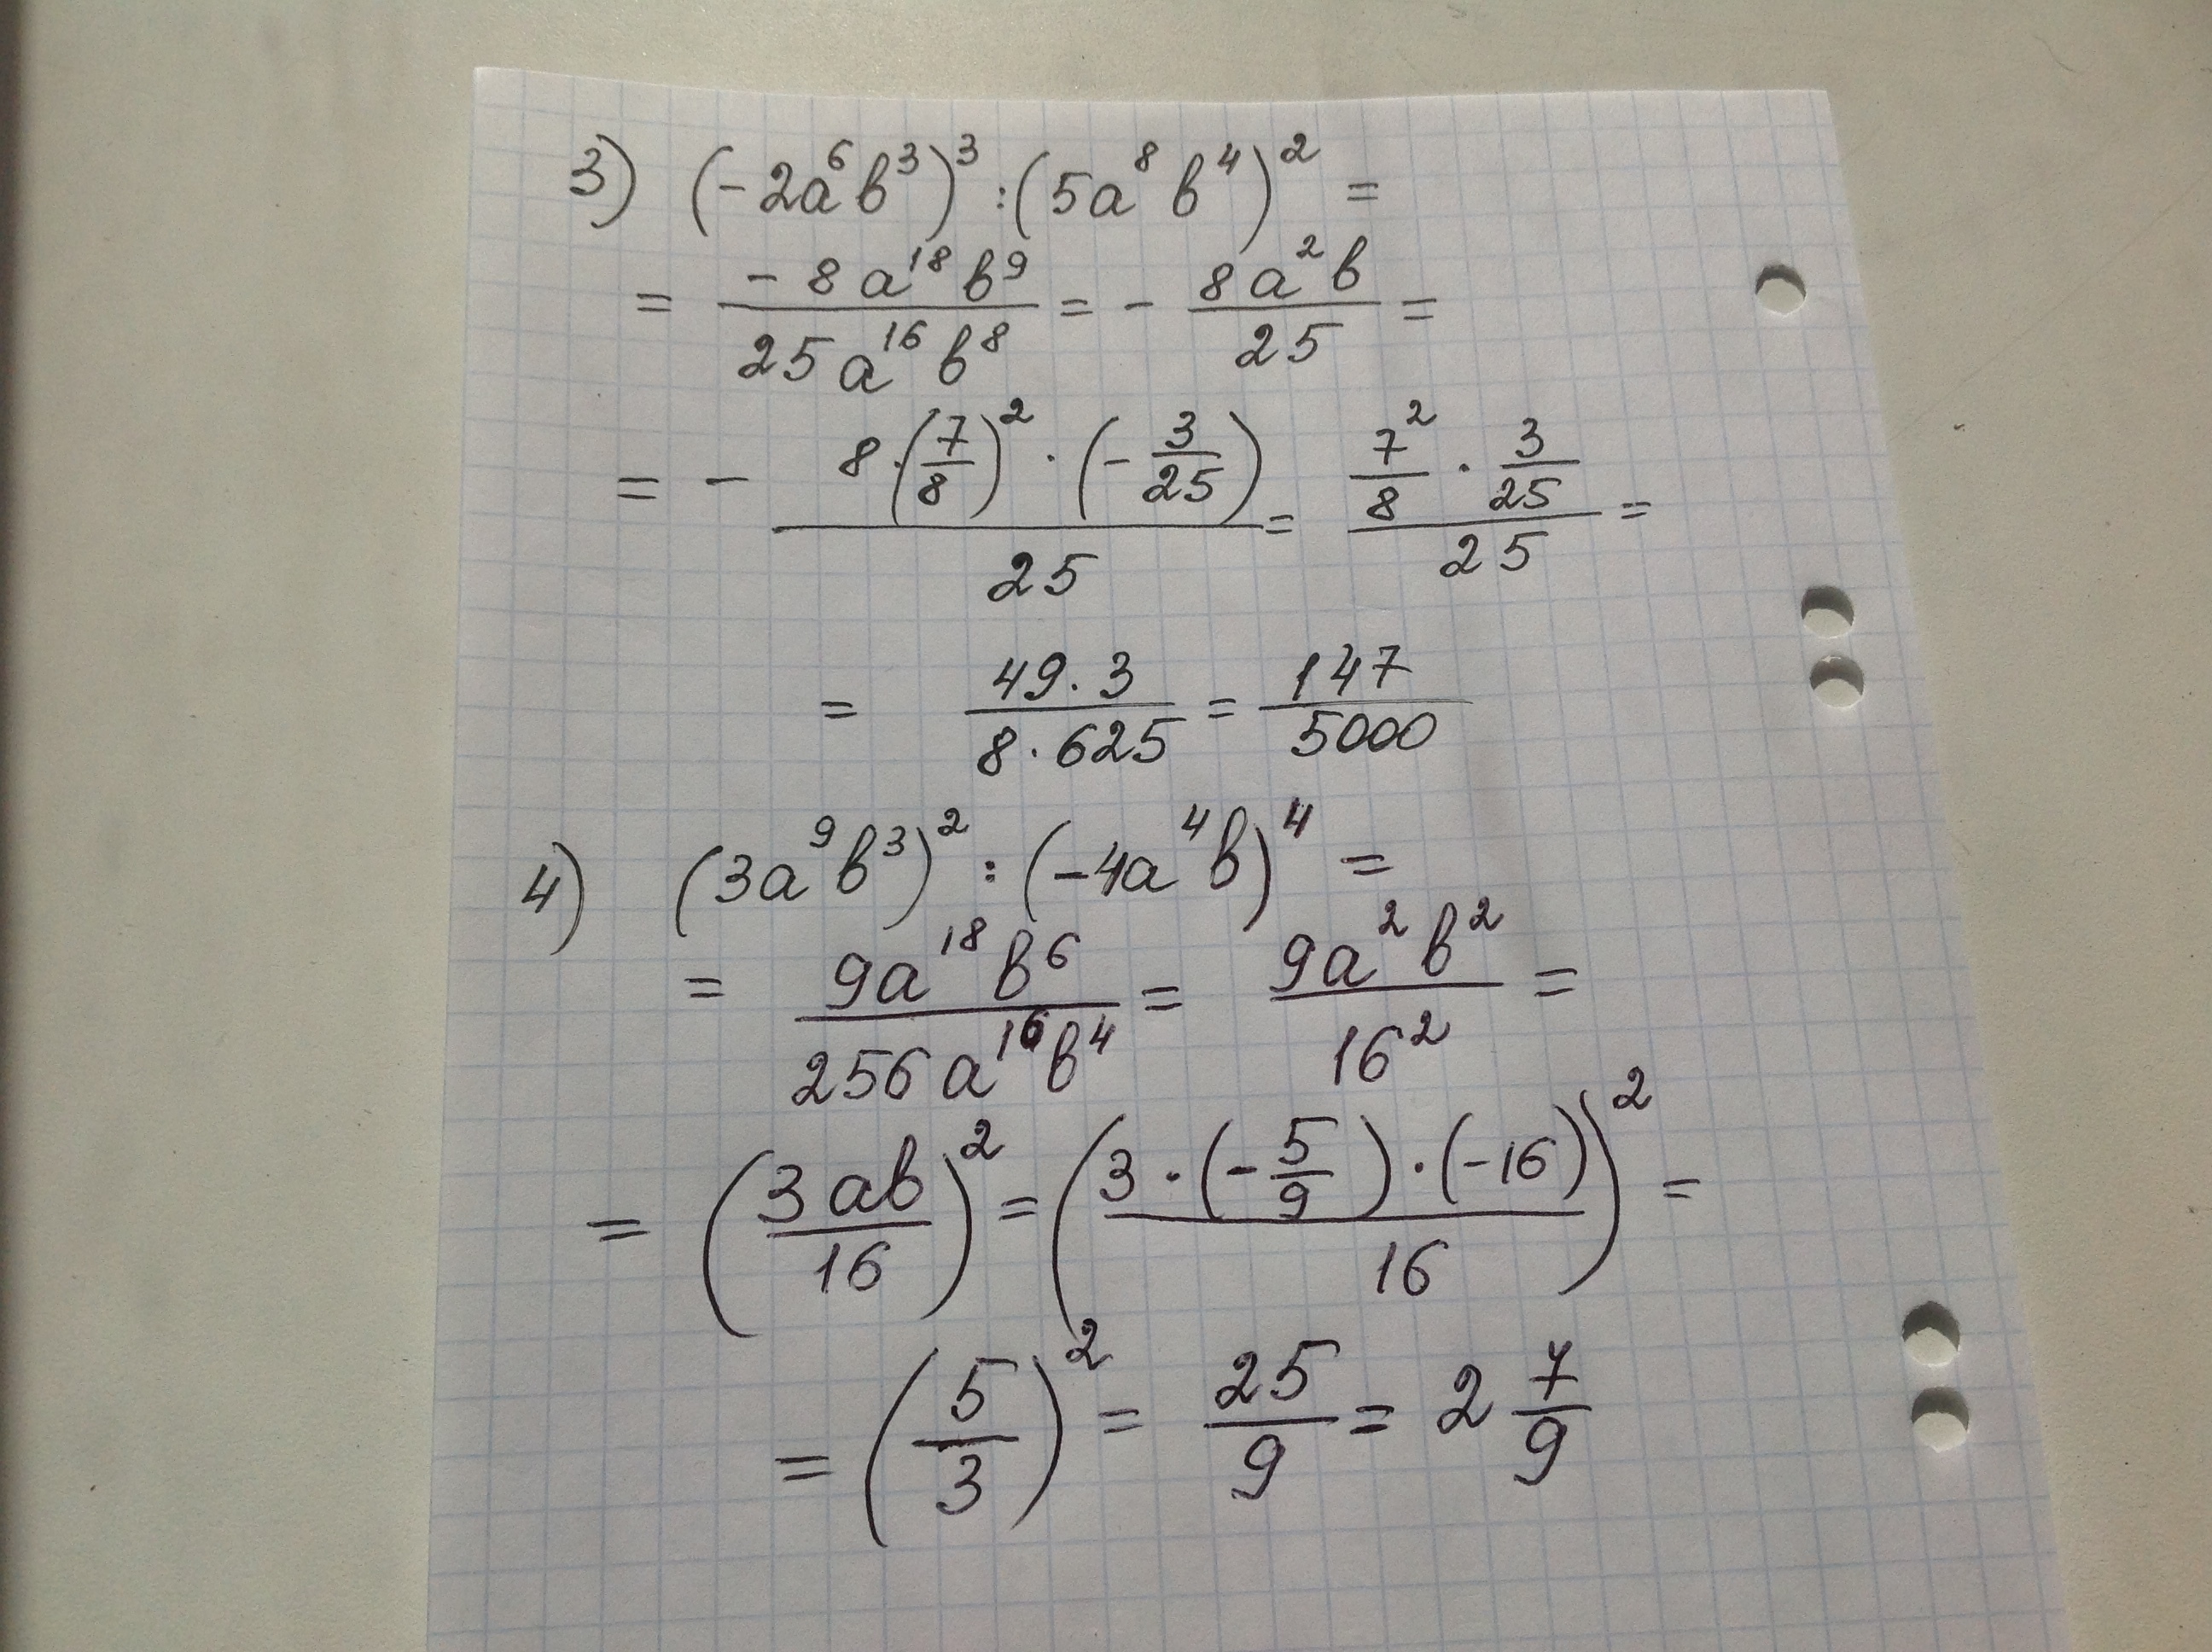 3) (-2a⁶b³)³ : (5a⁸b⁴)² =
= \frac{-8a^{18}b^9}{25a^{16}b^8} = -\frac{8a^2b}{25} =
= -\frac{8·(\frac{7}{8})^2·(-\frac{3}{25})}{25} = \frac{\frac{7^2}{8}·\frac{3}{25}}{25} =
= \frac{49·3}{8·625} = \frac{147}{5000}
4) (3a⁹b³)² : (-4a⁴b)⁴ =
= \frac{9a^{18}b^6}{256a^{16}b^4} = \frac{9a^2b^2}{16^2} =
= (\frac{3ab}{16})^2 = (\frac{3·(-\frac{5}{9})·(-16)}{16})^2 =
= (\frac{5}{3})^2 = \frac{25}{9} = 2\frac{7}{9}